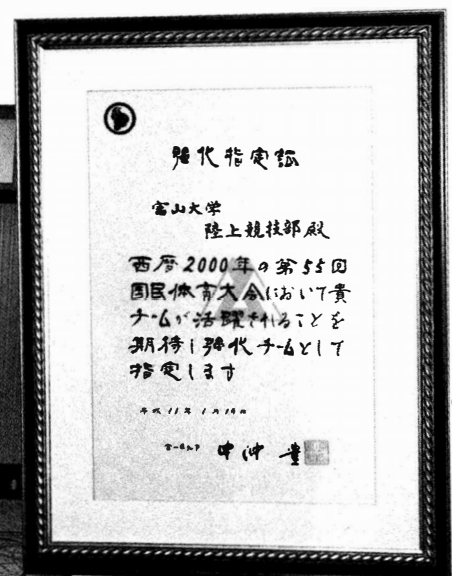 強化指定証
富山大学
陸上競技部 殿
西暦2000年の第55回
国民体育大会において貴
チームが活躍されることを
期待し強化チームとして
指定します
平成11年1月19日
中沖 豊